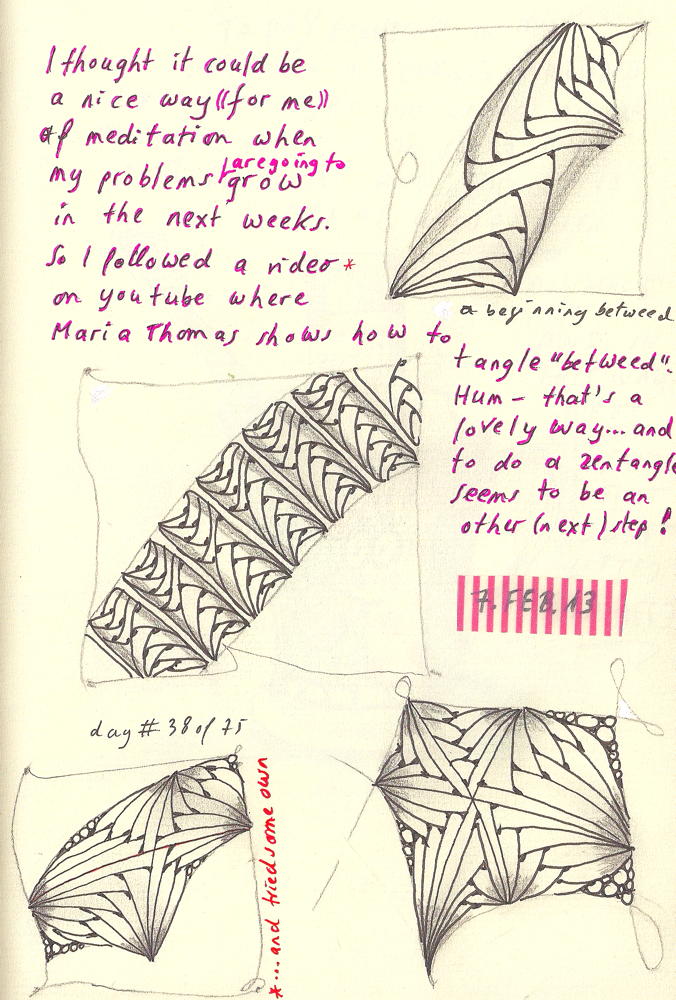 I thought it could be
a nice way ((for me))
of meditation when
my problems are going to grow
in the next weeks.
So I followed a video *
on youtube where
Maria Thomas shows how to
a beginning betweed
tangle "betweed".
Hum - that's a
lovely way... and
to do a zentangle
seems to be an
other (next) step!
7. FEB. 13
day # 38 of 75
*... and tried some own